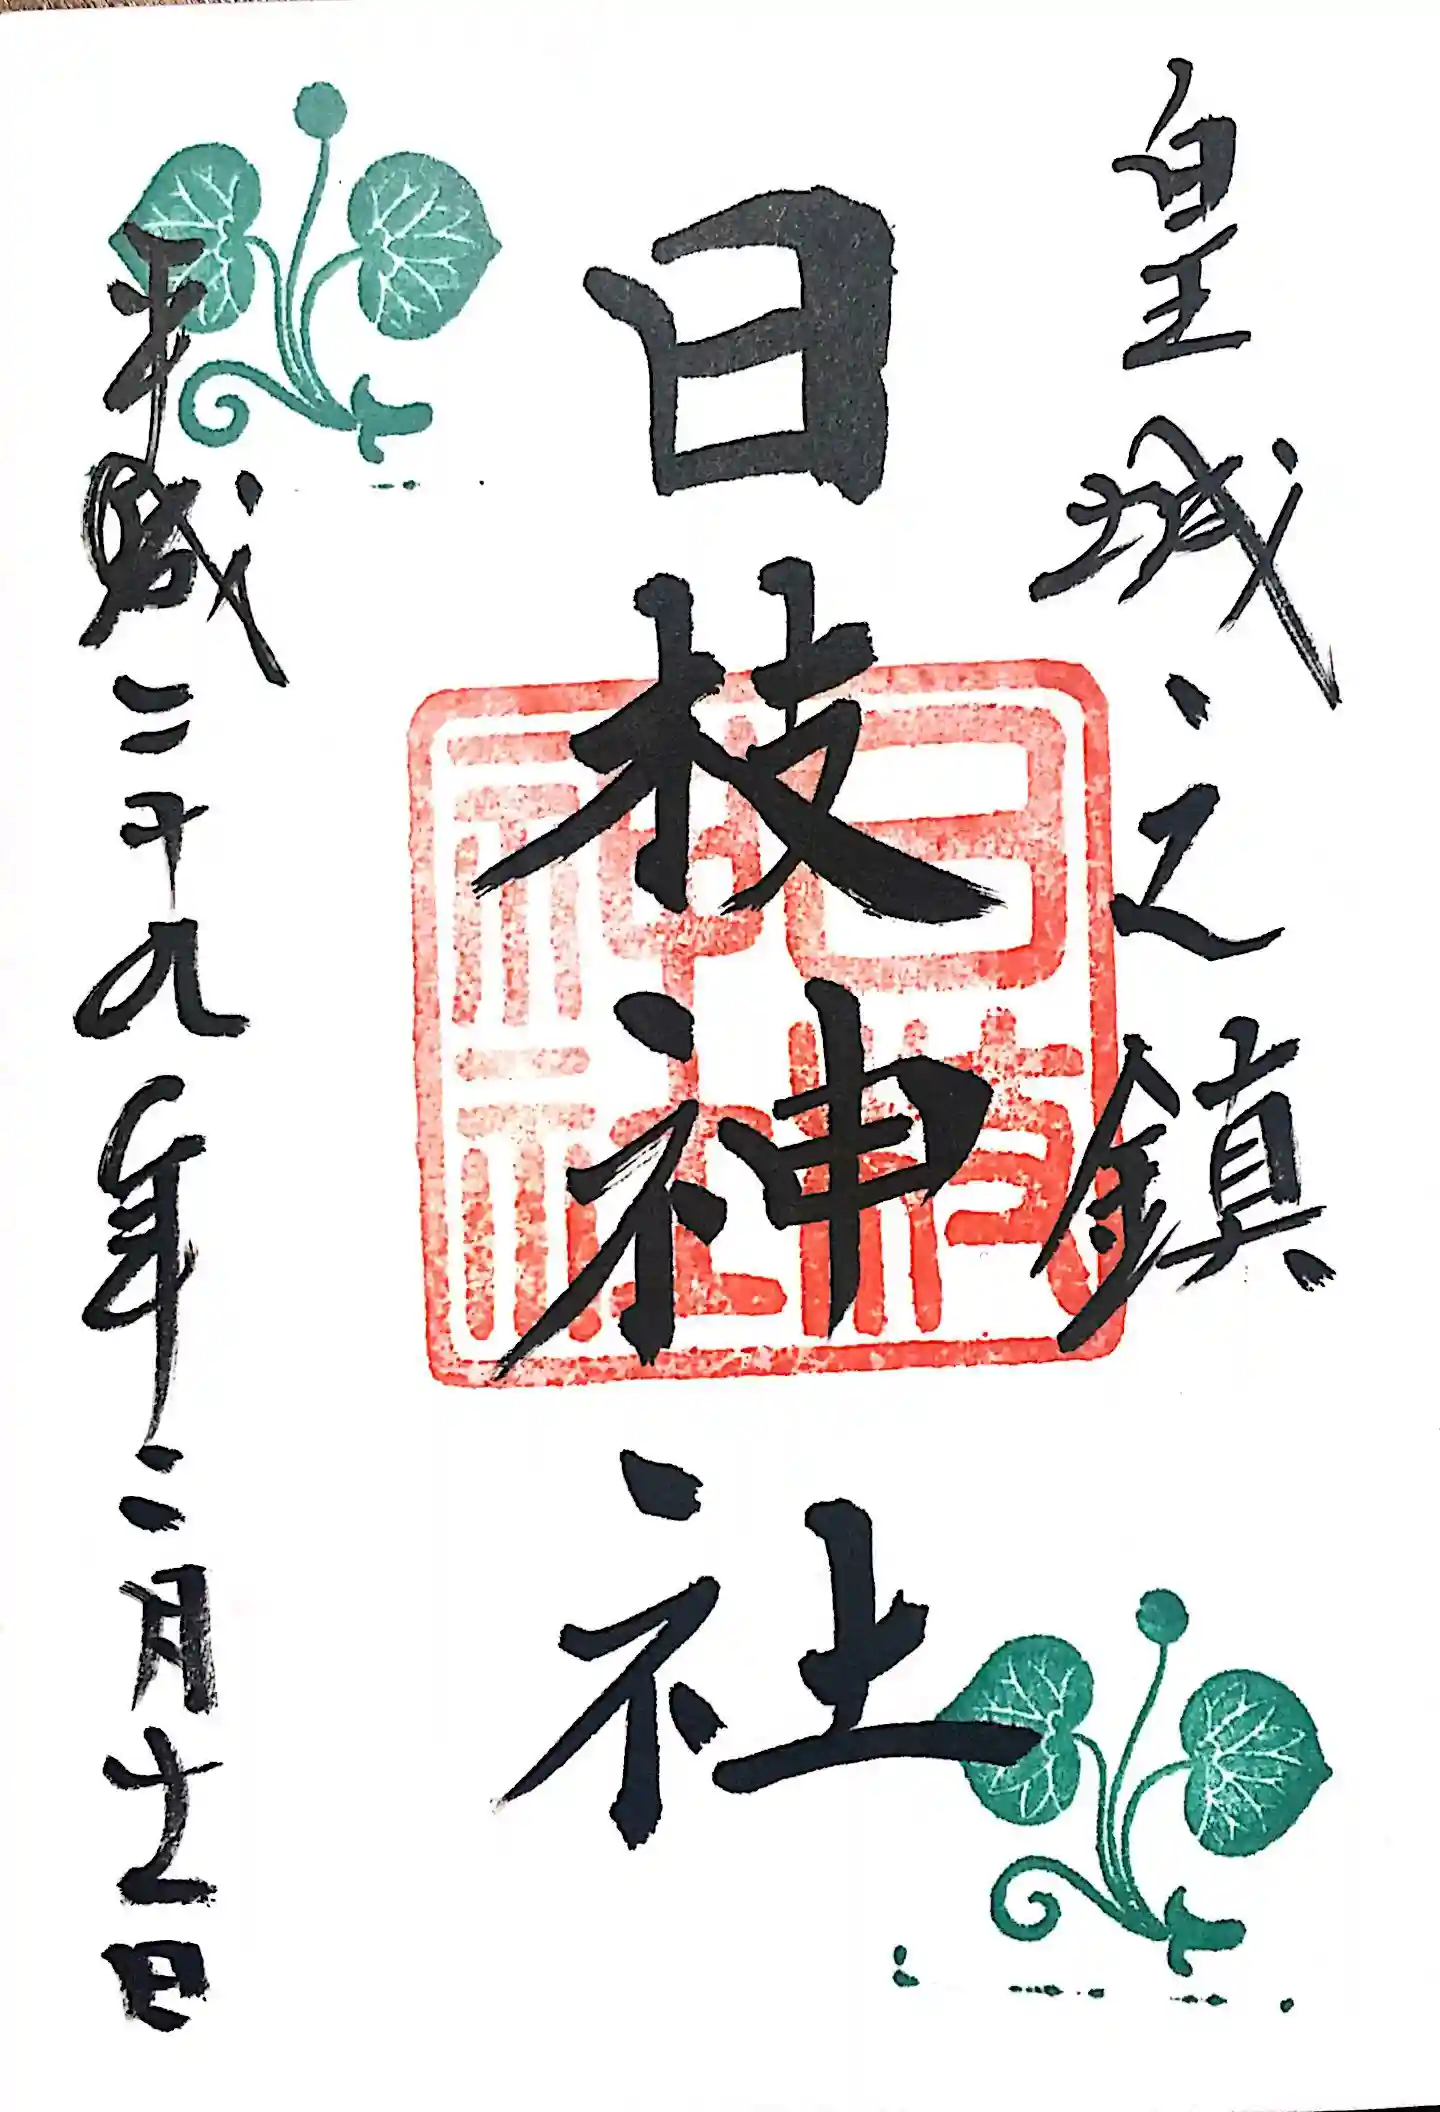 皇城之鎮
日枝神社
平成二十九年二月十一日
日枝
神社